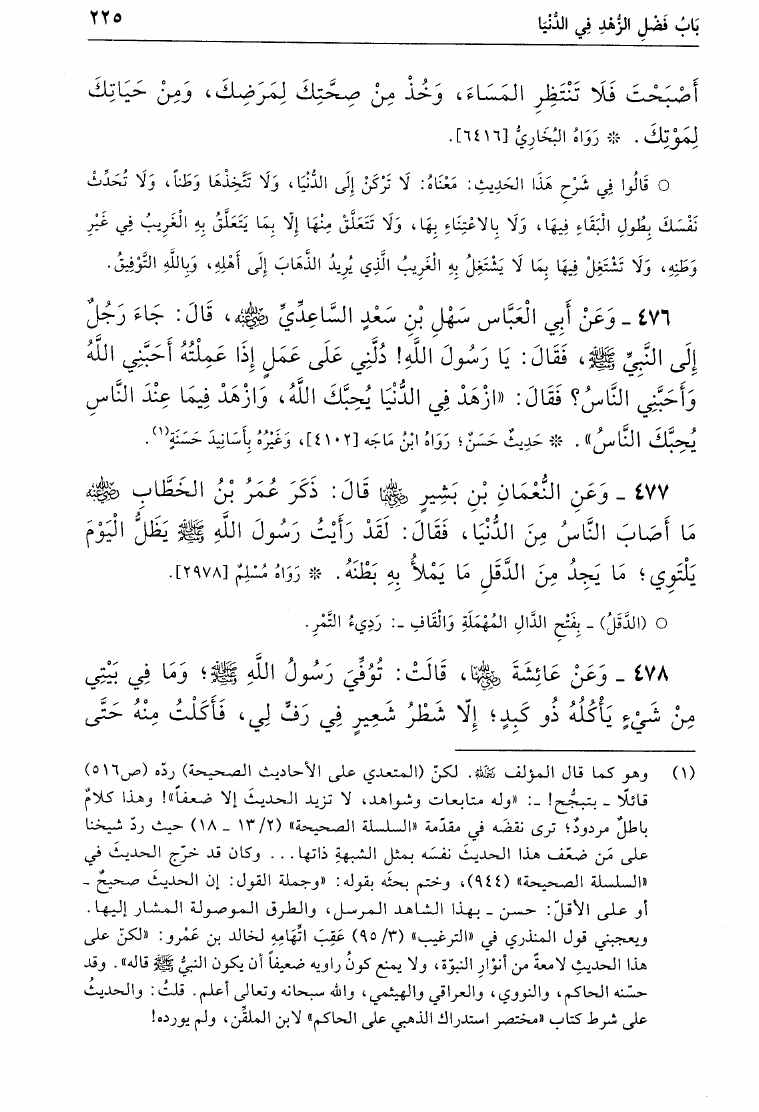 بَابُ فَضْلِ الزُّهْدِ فِي الدُّنْيَا ٢٢٥
أَصْبَحْتَ فَلَا تَنْتَظِرِ المَسَاءَ، وَخُذْ مِنْ صِحَّتِكَ لِمَرَضِكَ، وَمِنْ حَيَاتِكَ
لِمَوْتِكَ. * رَوَاهُ البُخَارِيُّ [٦٤١٦].
○ قَالُوا فِي شَرْحِ هَذَا الحَدِيثِ: مَعْنَاهُ: لَا تَرْكَنْ إِلَى الدُّنْيَا، وَلَا تَتَّخِذْهَا وَطَناً، وَلَا تُحَدِّثْ
نَفْسَكَ بِطُولِ الْبَقَاءِ فِيهَا، وَلَا بِالاعْتِنَاءِ بِهَا، وَلَا تَتَعَلَّقْ مِنْهَا إِلَّا بِمَا يَتَعَلَّقُ بِهِ الْغَرِيبُ فِي غَيْرِ
وَطَنِهِ، وَلَا تَشْتَغِلْ فِيهَا بِمَا لَا يَشْتَغِلُ بِهِ الْغَرِيبُ الَّذِي يُرِيدُ الذَّهَابَ إِلَى أَهْلِهِ، وَبِاللَّهِ التَّوْفِيقُ.
٤٧٦ ـ وَعَنْ أَبِي الْعَبَّاسِ سَهْلِ بْنِ سَعْدٍ السَّاعِدِيِّ رضي الله عنه، قَالَ: جَاءَ رَجُلٌ
إِلَى النَّبِيِّ ﷺ، فَقَالَ: يَا رَسُولَ اللَّهِ! دُلَّنِي عَلَى عَمَلٍ إِذَا عَمِلْتُهُ أَحَبَّنِي اللَّهُ
وَأَحَبَّنِي النَّاسُ؟ فَقَالَ: «ازْهَدْ فِي الدُّنْيَا يُحِبَّكَ اللَّهُ، وَازْهَدْ فِيمَا عِنْدَ النَّاسِ
يُحِبَّكَ النَّاسُ». * حَدِيثٌ حَسَنٌ؛ رَوَاهُ ابْنُ مَاجَه [٤١٠٢]، وَغَيْرُهُ بِأَسَانِيدَ حَسَنَةٍ(١).
٤٧٧ ـ وَعَنِ النُّعْمَانِ بْنِ بَشِيرٍ رضي الله عنهما قَالَ: ذَكَرَ عُمَرُ بْنُ الخَطَّابِ رضي الله عنه
مَا أَصَابَ النَّاسُ مِنَ الدُّنْيَا، فَقَالَ: لَقَدْ رَأَيْتُ رَسُولَ اللَّهِ ﷺ يَظَلُّ الْيَوْمَ
يَلْتَوِي؛ مَا يَجِدُ مِنَ الدَّقَلِ مَا يَمْلأُ بِهِ بَطْنَهُ. * رَوَاهُ مُسْلِمٌ [٢٩٧٨].
○ (الدَّقَلُ) ـ بِفَتْحِ الدَّالِ المُهْمَلَةِ وَالْقَافِ ـ: رَدِيءُ التَّمْرِ.
٤٧٨ ـ وَعَنْ عَائِشَةَ رضي الله عنها، قَالَتْ: تُوُفِّيَ رَسُولُ اللَّهِ ﷺ؛ وَمَا فِي بَيْتِي
مِنْ شَيْءٍ يَأْكُلُهُ ذُو كَبِدٍ؛ إِلَّا شَطْرُ شَعِيرٍ فِي رَفٍّ لِي، فَأَكَلْتُ مِنْهُ حَتَّى
(١) وهو كما قال المؤلف رحمه الله. لكنّ (المتعدي على الأحاديث الصحيحة) ردّه (ص٥١٦)
قائلًا ـ بتبجُّح! ـ: «وله متابعات وشواهد، لا تزيد الحديثَ إلا ضعفاً»! وهذا كلامٌ
باطلٌ مردودٌ؛ ترى نقضَه في مقدّمة «السلسلة الصحيحة» (١٣/٢ ـ ١٨) حيث ردّ شيخنا
على مَن ضعّف هذا الحديثَ نفسَه بمثل الشبهةِ ذاتها... وكان قد خرّج الحديثَ في
«السلسلة الصحيحة» (٩٤٤)، وختم بحثَه بقوله: «وجملة القول: إن الحديثَ صحيحٌ ـ
أو على الأقلّ: حسن ـ بهذا الشاهد المرسل، والطرق الموصولة المشار إليها.
ويعجبني قول المنذري في «الترغيب» (٩٥/٣) عَقِبَ اتّهامِهِ لخالد بن عَمْرو: «لكنّ على
هذا الحديثِ لامعةً من أنوْارِ النبوّة، ولا يمنع كونُ راويه ضعيفاً أن يكون النبيُّ ﷺ قاله». وقد
حسّنه الحاكم، والنووي، والعراقي والهيثمي، والله سبحانه وتعالى أعلم. قلتُ: والحديثُ
على شرط كتاب «مختصر استدراك الذهبي على الحاكم» لابن الملقّن، ولم يورده!